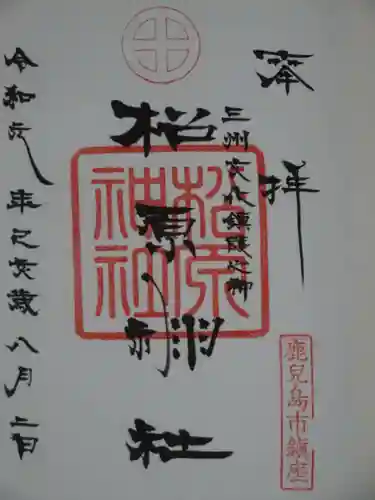 奉拝
三州安心鎮護之神
松原神社
松原神社
令和元年己亥歳八月二日
鹿児島市鎮座